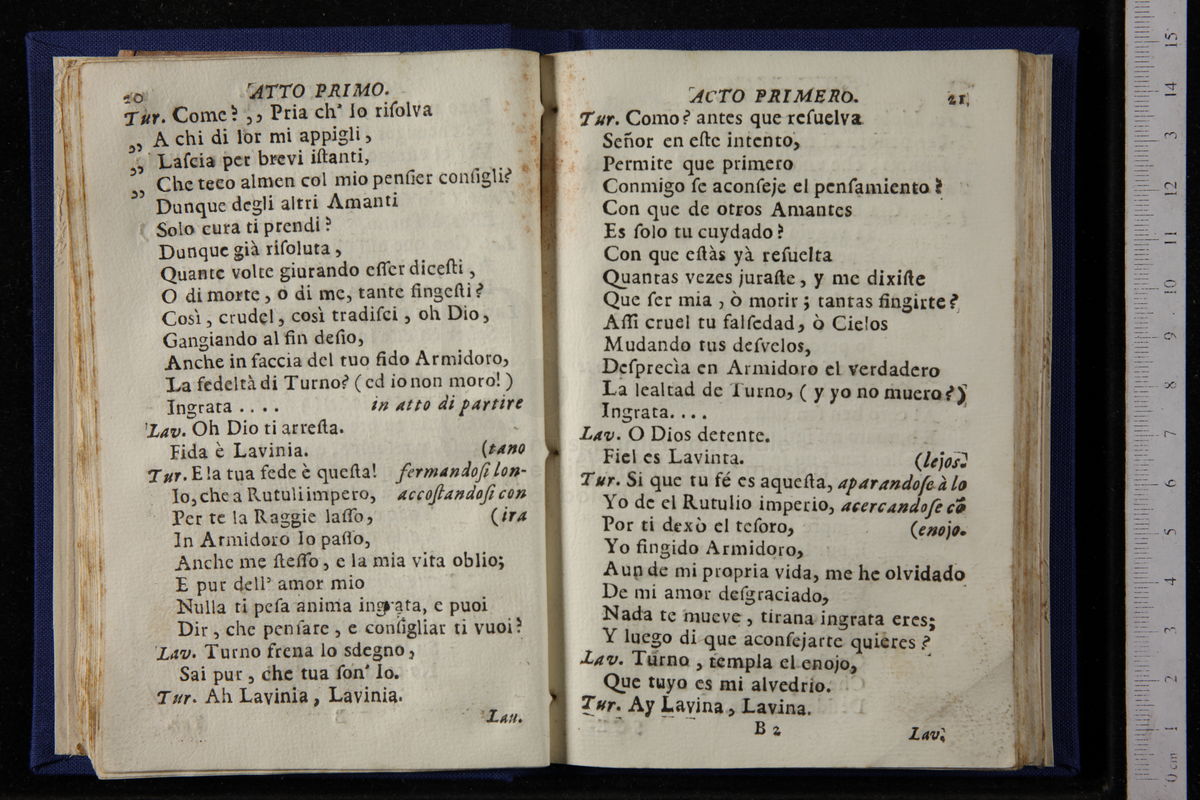 20 ATTO PRIMO.
Tur. Come? ,, Pria ch' Io riſolva
,, A chi di lor mi appigli,
,, Laſcia per brevi iſtanti,
,, Che teco almen col mio penſier conſigli?
Dunque degli altri Amanti
Solo cura ti prendi?
Dunque già riſoluta,
Quante volte giurando eſſer diceſti,
O di morte, o di me, tante fingeſti?
Così, crudel, così tradiſci, oh Dio,
Gangiando al fin deſio,
Anche in faccia del tuo fido Armidoro,
La fedeltà di Turno? (ed io non moro!)
Ingrata .... in atto di partire
Lav. Oh Dio ti arreſta.
Fida è Lavinia. (tano
Tur. E la tua fede è queſta! fermandoſi lon-
Io, che a Rutuli impero, accoſtandoſi con
Per te la Raggie laſſo, (ira
In Armidoro Io paſſo,
Anche me ſteſſo, e la mia vita oblio;
E pur dell' amor mio
Nulla ti peſa anima ingrata, e puoi
Dir, che penſare, e conſigliar ti vuoi?
Lav. Turno frena lo sdegno,
Sai pur, che tua ſon' Io.
Tur. Ah Lavinia, Lavinia.
Lau.
ACTO PRIMERO. 21
Tur. Como? antes que reſuelva
Señor en eſte intento,
Permite que primero
Conmigo ſe aconſeje el penſamiento?
Con que de otros Amantes
Es ſolo tu cuydado?
Con que eſtàs yà reſuelta
Quantas vezes juraſte, y me dixiſte
Que ſer mia, ò morir; tantas fingirte?
Aſſi cruel tu falſedad, ò Cielos
Mudando tus deſvelos,
Deſprecìa en Armidoro el verdadero
La lealtad de Turno, (y yo no muero?)
Ingrata....
Lav. O Dios detente.
Fiel es Lavinta. (lejos.
Tur. Si que tu fé es aqueſta, aparandoſe à lo
Yo de el Rutulio imperio, acercandoſe cō
Por ti dexò el teſoro, (enojo.
Yo fingido Armidoro,
Aun de mi propria vida, me he olvidado
De mi amor deſgraciado,
Nada te mueve, tirana ingrata eres;
Y luego di que aconſejarte quieres?
Lav. Turno, templa el enojo,
Que tuyo es mi alvedrio.
Tur. Ay Lavina, Lavina.
B 2 Lav.